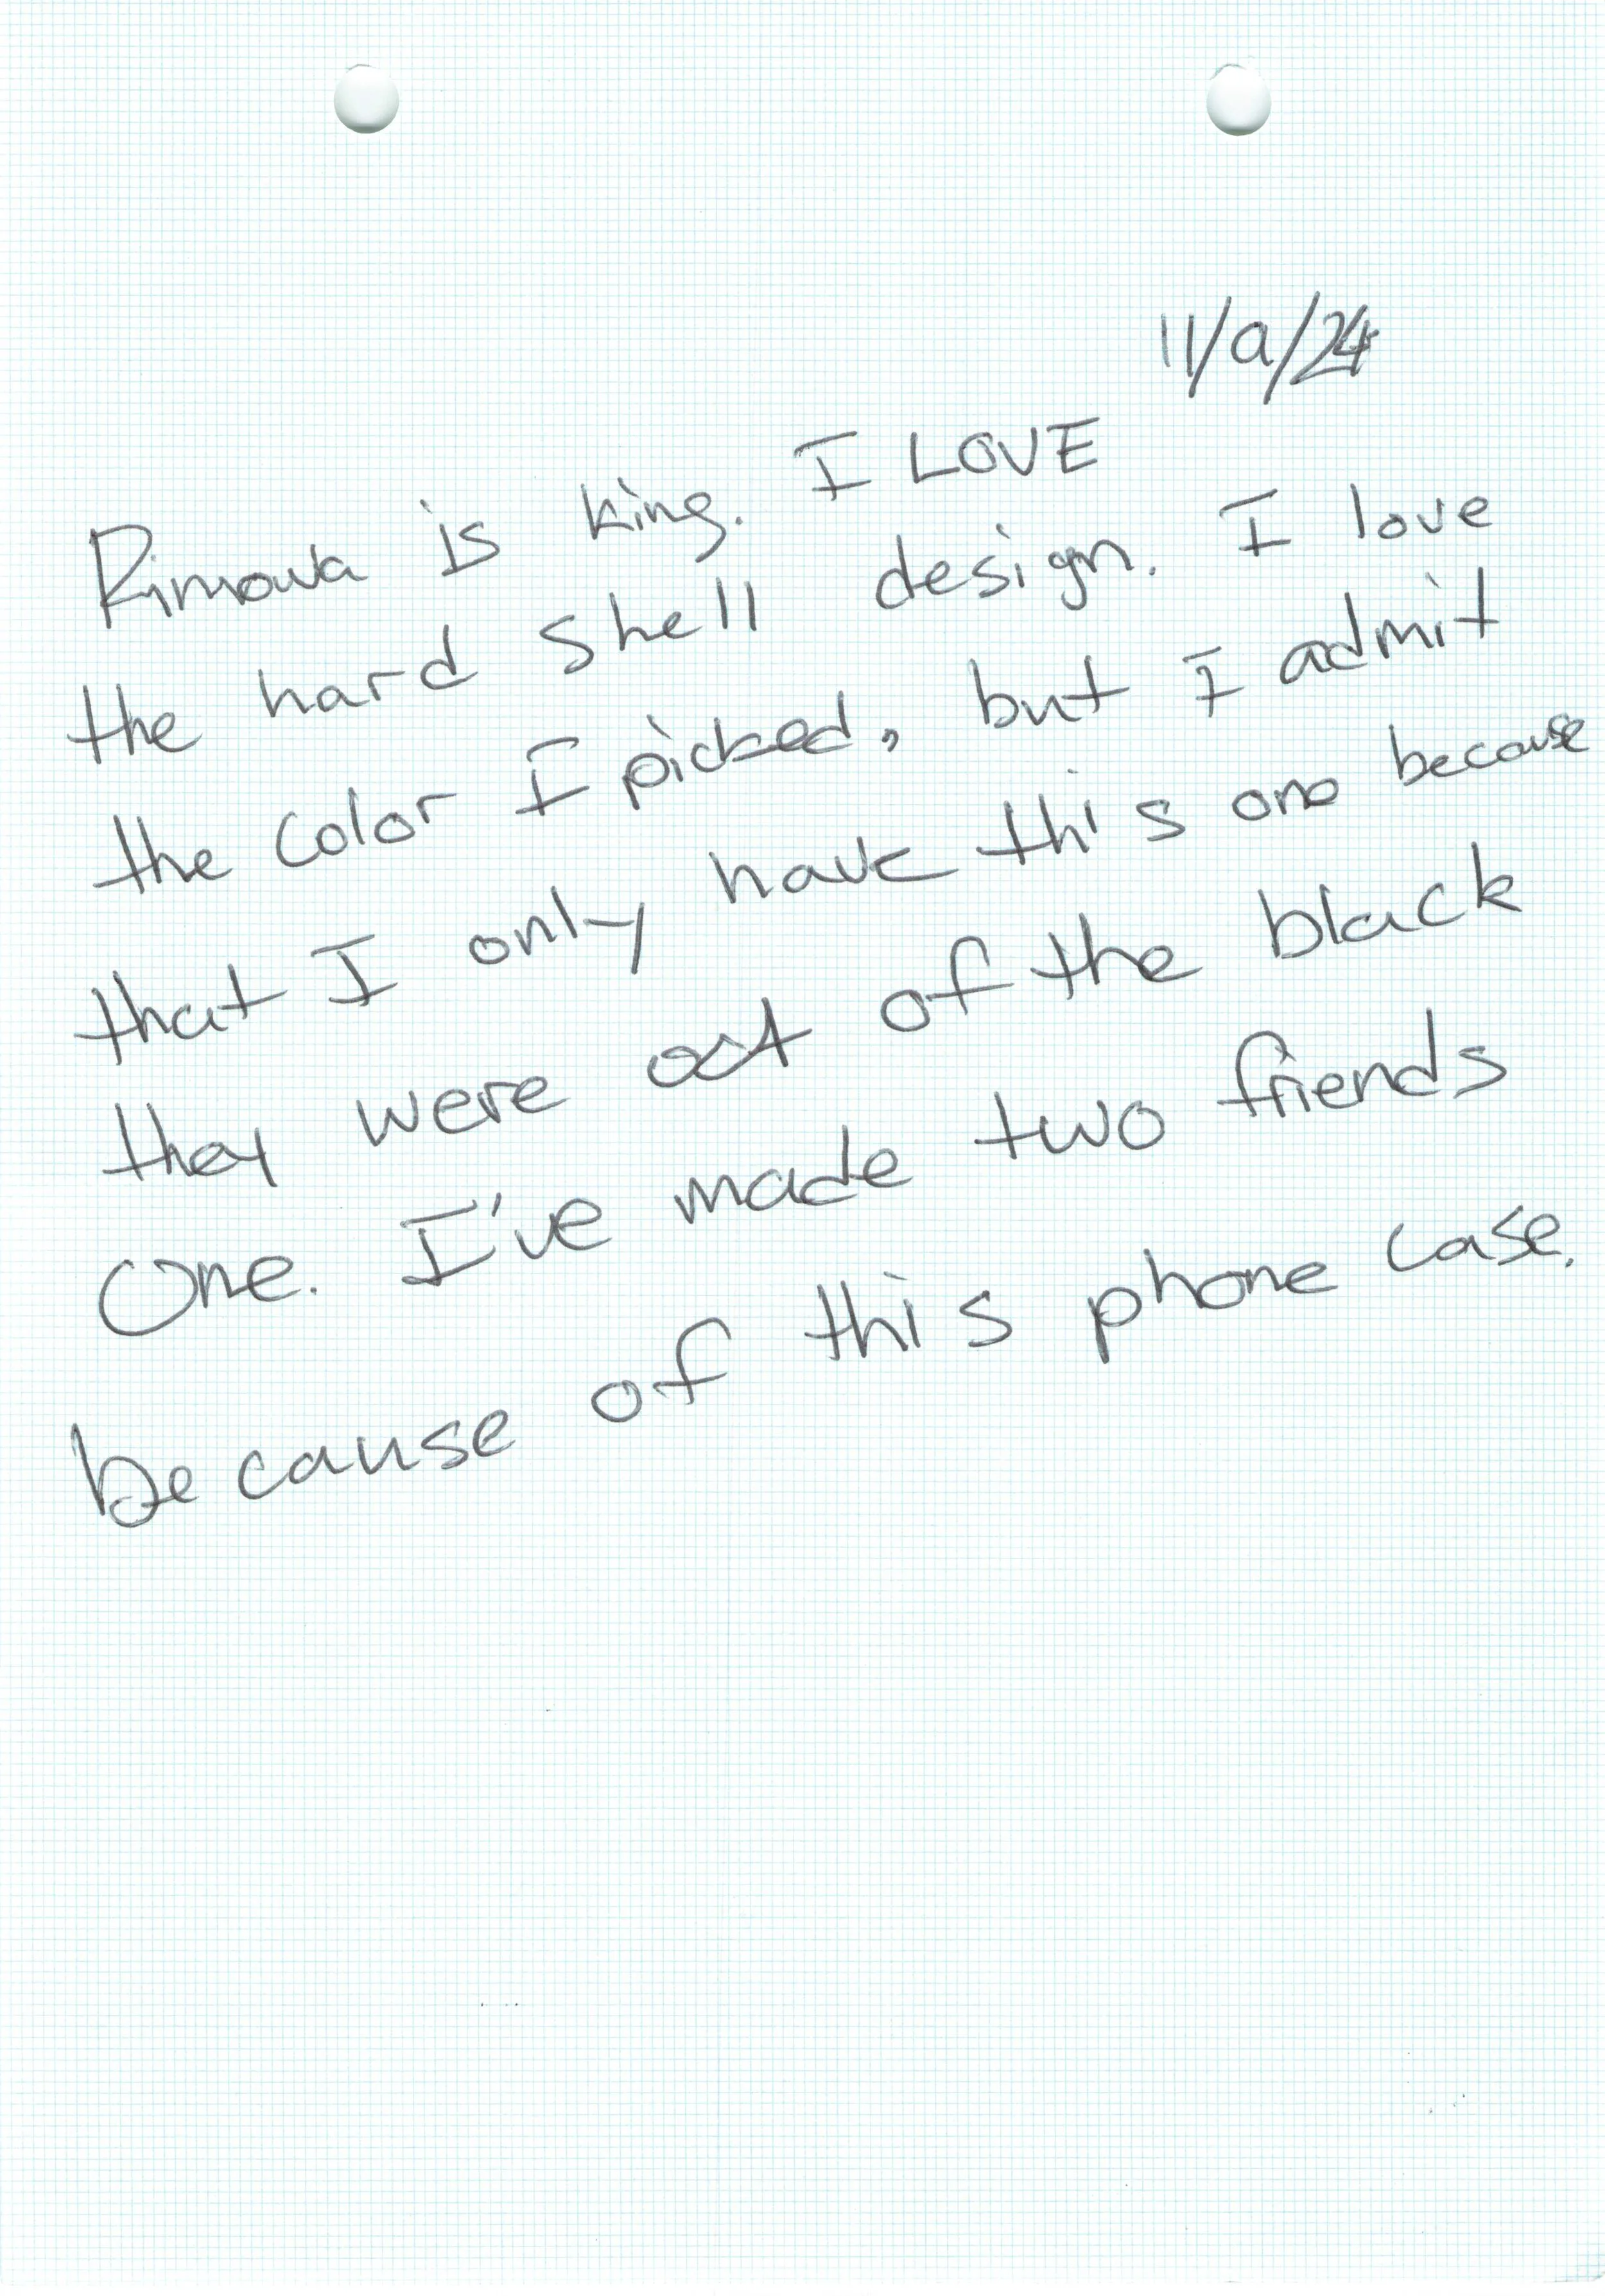 11/9/24
Rimowa is king. I LOVE
the hard shell design. I love
the color I picked, but I admit
that I only have this one because
they were out of the black
One. I've made two friends
because of this phone case.